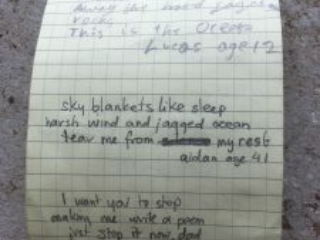 away the hard jagged
rocks
This is the Ocean
Lucas age 12
sky blankets like sleep
harsh wind and jagged ocean
tear me from my rest
aidan age 41
I want you to stop
making me write a poem
just stop it now, dad